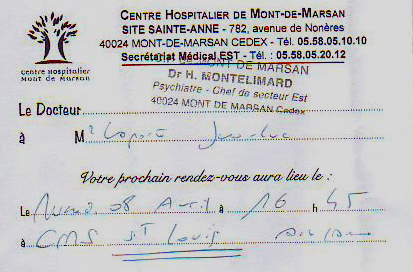 CENTRE HOSPITALIER DE MONT-DE-MARSAN
SITE SAINTE-ANNE - 782, avenue de Nonères
40024 MONT-DE-MARSAN CEDEX - Tél. 05.58.05.10.10
Secrétariat Médical EST - Tél. : 05.58.05.20.12
Centre Hospitalier
Mont de Marsan
DE MARSAN
Dr H. MONTELIMARD
Psychiatre - Chef de secteur Est
40024 MONT DE MARSAN Cedex
Le Docteur
à Mr
Votre prochain rendez-vous aura lieu le :
Le 08 Avril à 16 h 45
à CMS ST Louis